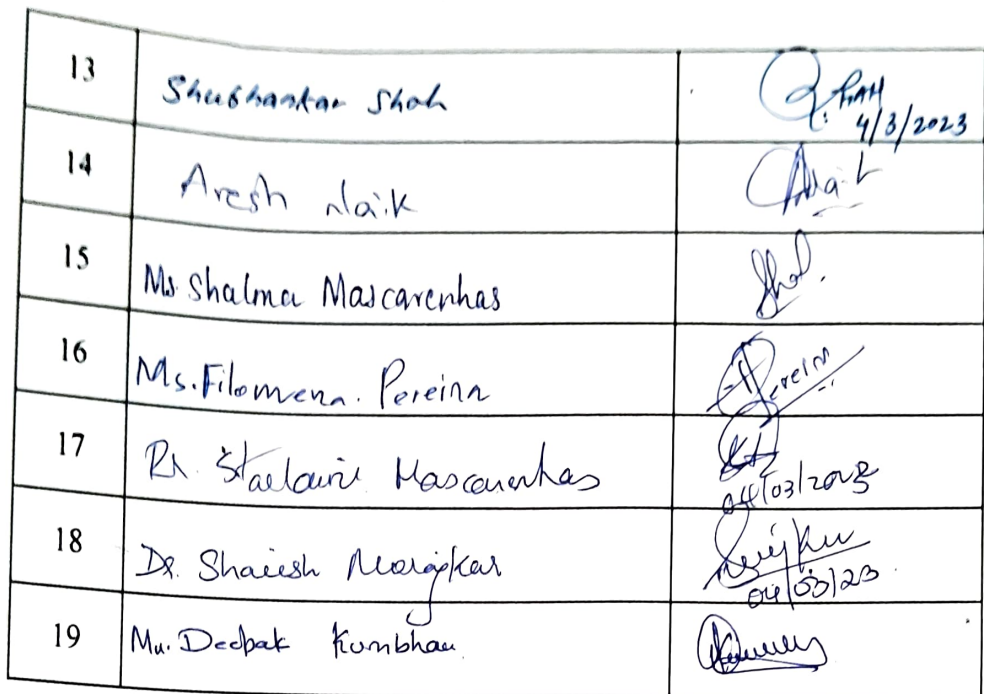 13 Shubhankar Shah
SHAH
4/3/2023
14 Aresh Naik Naik
15 Ms. Shalma Mascarenhas Shal.
16 Ms. Filomena. Pereira Pereira
17 Mascarenhas
04/03/2023
18 Dr. Shailesh Morajkar
04/03/23
19 Mr. Deepak Kumbhar